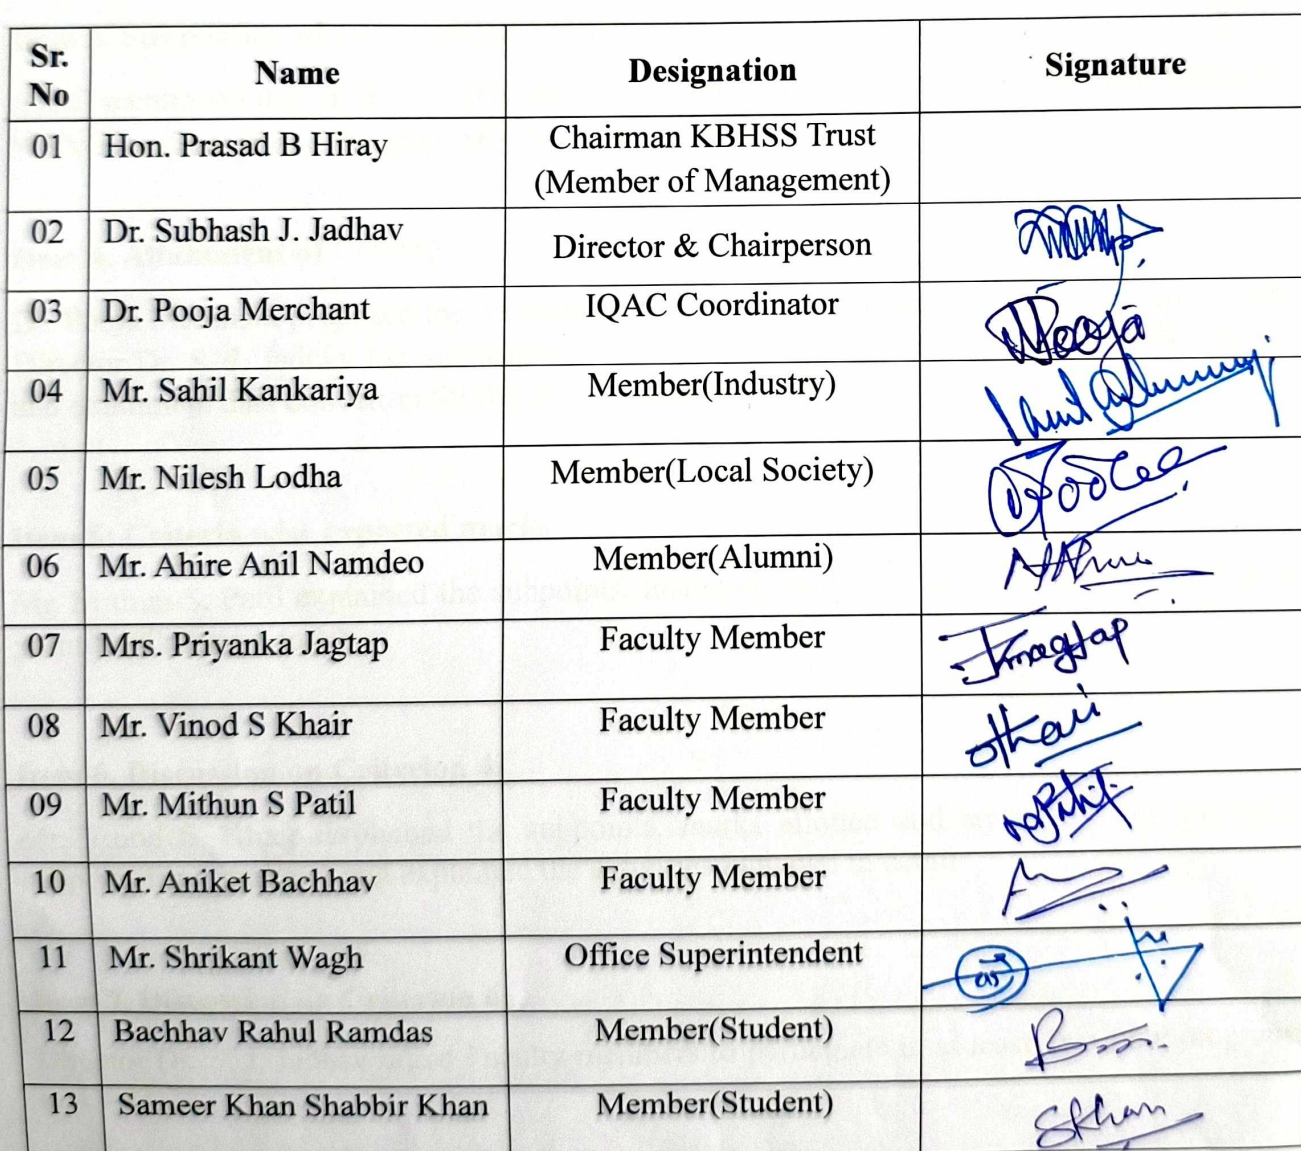 Sr. No Name Designation Signature
01 Hon. Prasad B Hiray Chairman KBHSS Trust
(Member of Management)
02 Dr. Subhash J. Jadhav Director & Chairperson
03 Dr. Pooja Merchant IQAC Coordinator Pooja
04 Mr. Sahil Kankariya Member(Industry)
05 Mr. Nilesh Lodha Member(Local Society)
06 Mr. Ahire Anil Namdeo Member(Alumni)
07 Mrs. Priyanka Jagtap Faculty Member
08 Mr. Vinod S Khair Faculty Member
09 Mr. Mithun S Patil Faculty Member
10 Mr. Aniket Bachhav Faculty Member
11 Mr. Shrikant Wagh Office Superintendent
12 Bachhav Rahul Ramdas Member(Student)
13 Sameer Khan Shabbir Khan Member(Student) SKhan